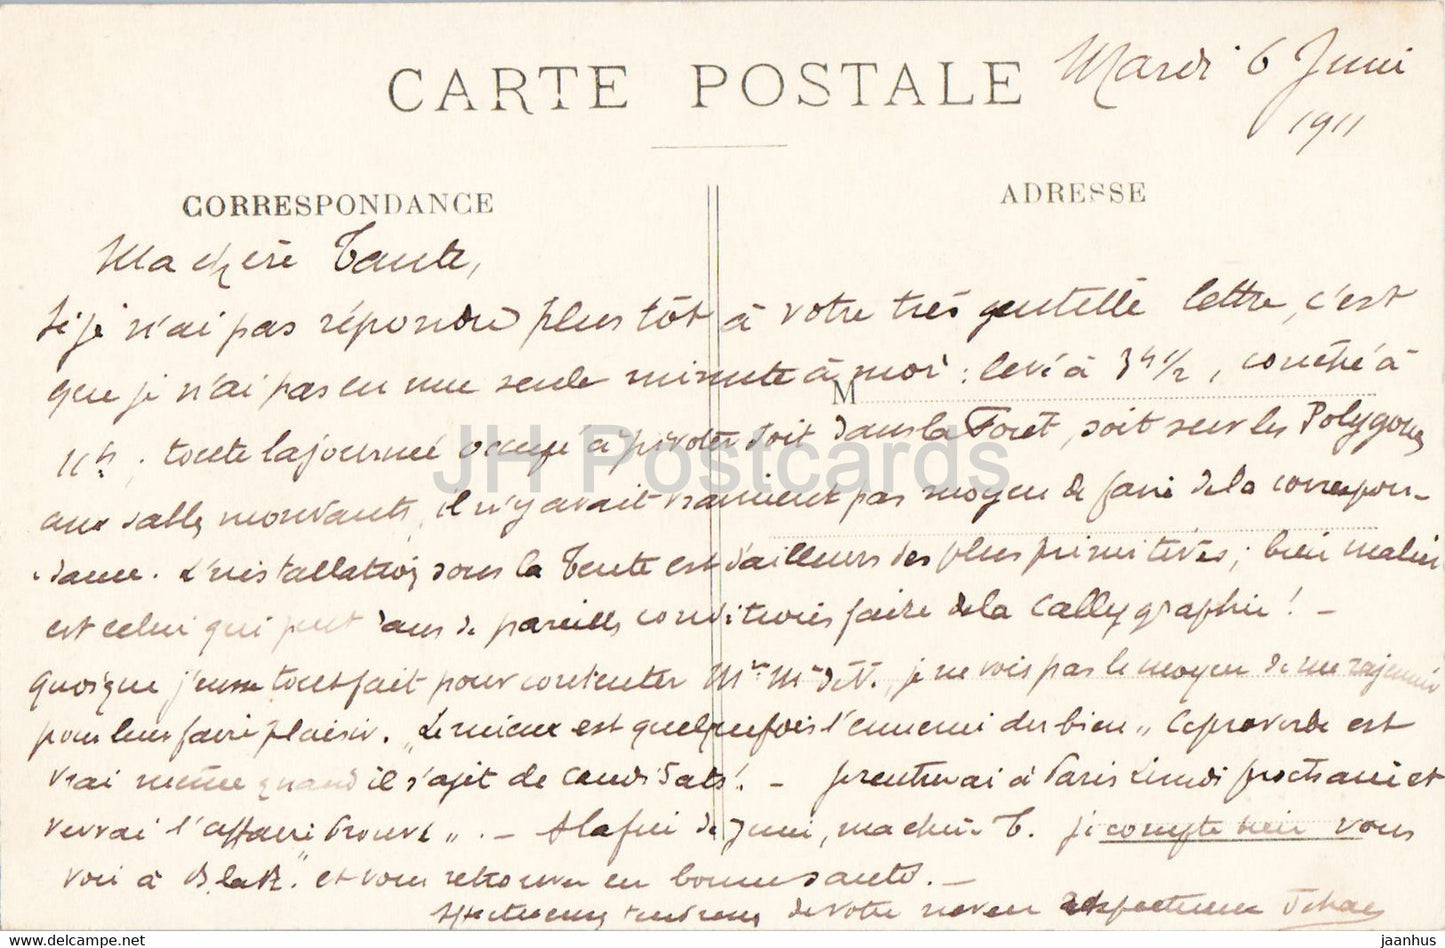 CARTE POSTALE
Mardi 6 Juin
1911
CORRESPONDANCE
ADRESSE
Ma chère Tante,
Si je n'ai pas répondu plus tôt à votre très gentille lettre, c'est
que je n'ai pas eu une seule minute à moi : levé à 3h 1/2, couché à
M
11h, toute la journée occupé à pivoter soit dans la Foret, soit sur les Polygones
aux sables mouvants, il n'y avait vraiment pas moyen de faire de la correspon-
dance. L'installation sous la Tente est d'ailleurs des plus primitives ; bien malin
est celui qui peut dans de pareilles conditions faire de la Callygraphie ! -
Quoique j'eusse tout fait pour contenter Mr Me de V., je ne vois pas le moyen de me rajeunir
pour leur faire plaisir. "Le mieux est quelquefois l'ennemi du bien" Ce proverbe est
vrai même quand il s'agit de candidats ! - Je rentrerai à Paris Lundi prochain et
verrai l'affaire . - A la fin de Juin, ma chère T. je compte bien vous
voir à et vous retrouver en bonne santé. -
de votre neveu
JH Postcards
delcampe.net
jaanhus